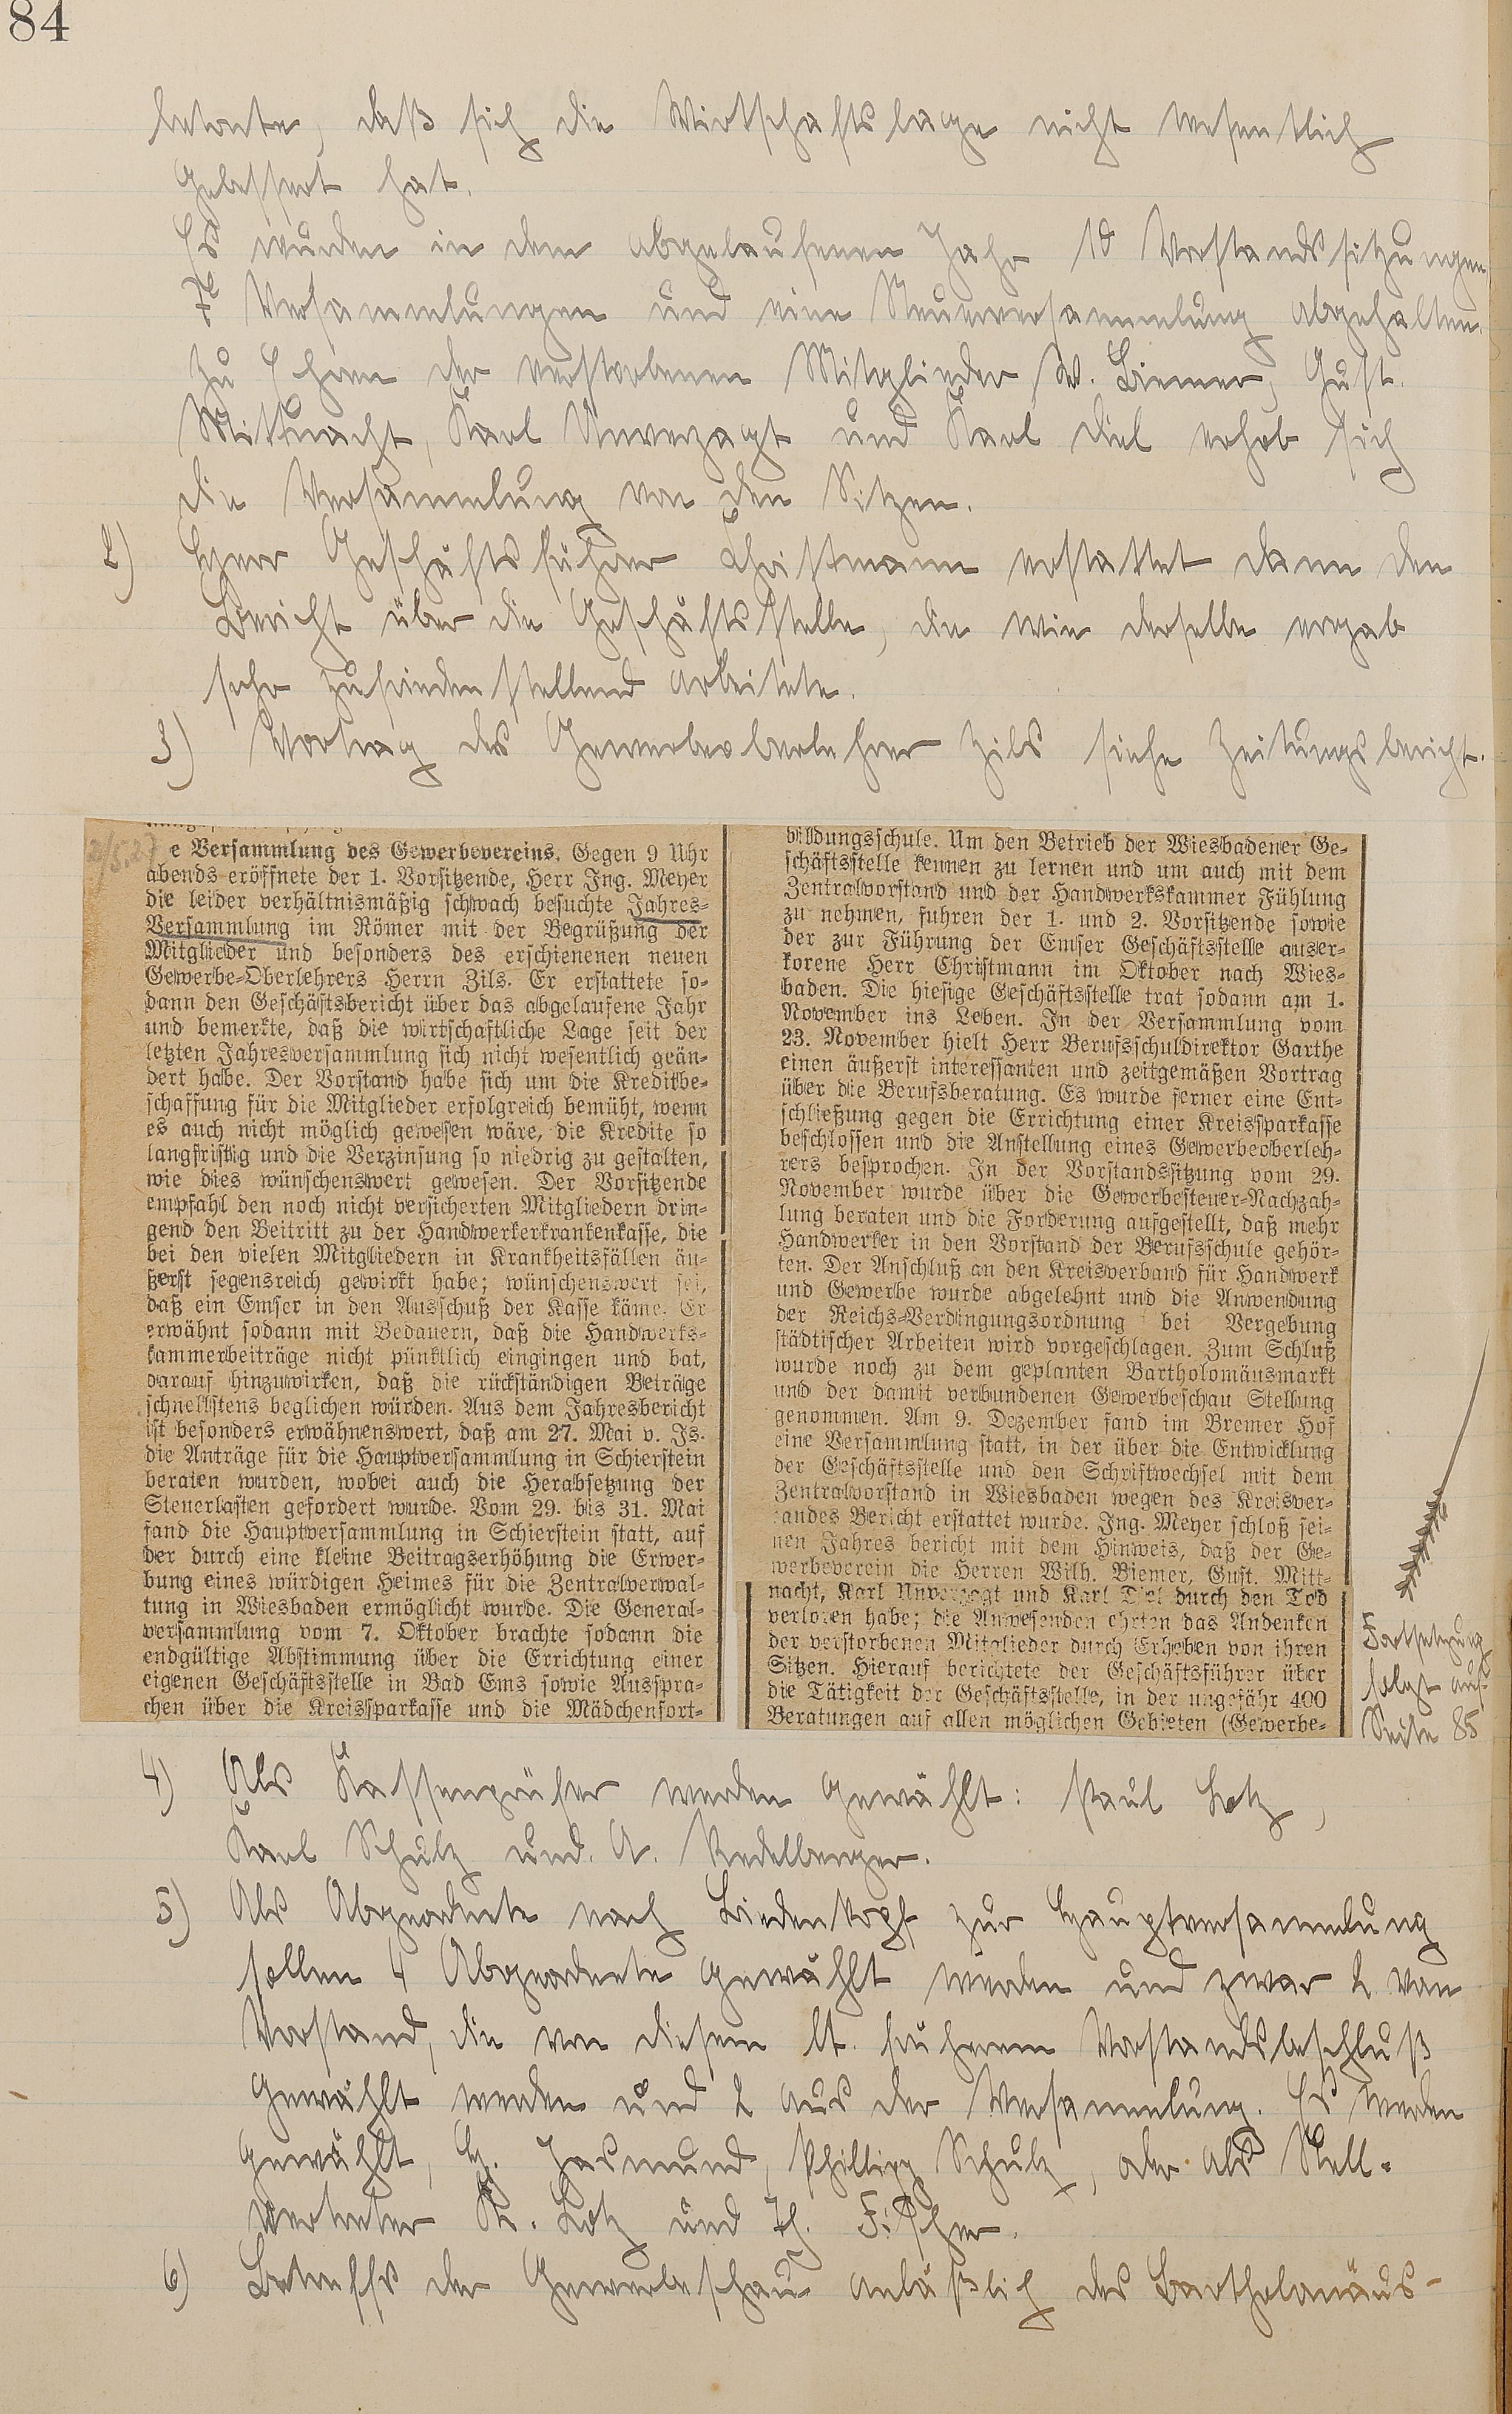 84
betonte, daß sich die Wirtschaftslage nicht wesentlich
gebessert hat.
Es wurden in dem abgelaufenen Jahr 10 Vorstandssitzungen
7 Versammlungen und eine Steuerversammlung abgehalten.
Zu Ehren der verstorbenen Mitglieder W. Biemer, Gust.
Mittnacht, Karl Unverzagt und Karl Diel erhob sich
die Versammlung von den Sitzen.
2) Herr Geschäftsführer Christmann erstattet dann den
Bericht über die Geschäftsstelle, die wie derselbe ergab
sehr zufriedenstellend arbeitete.
3) Vortrag des Gewerbeoberlehrer Zils siehe Zeitungsbericht.
2/5.27
e Versammlung des Gewerbevereins. Gegen 9 Uhr
abends eröffnete der 1. Vorsitzende, Herr Ing. Meyer
die leider verhältnismäßig schwach besuchte Jahres-
Versammlung im Römer mit der Begrüßung der
Mitglieder und besonders des erschienenen neuen
Gewerbe-Oberlehrers Herrn Zils. Er erstattete so-
dann den Geschäftsbericht über das abgelaufene Jahr
und bemerkte, daß die wirtschaftliche Lage seit der
letzten Jahresversammlung sich nicht wesentlich geän-
dert habe. Der Vorstand habe sich um die Kreditbe-
schaffung für die Mitglieder erfolgreich bemüht, wenn
es auch nicht möglich gewesen wäre, die Kredite so
langfristig und die Verzinsung so niedrig zu gestalten,
wie dies wünschenswert gewesen. Der Vorsitzende
empfahl den noch nicht versicherten Mitgliedern drin-
gend den Beitritt zu der Handwerkerkrankenkasse, die
bei den vielen Mitgliedern in Krankheitsfällen äu-
ßerst segensreich gewirkt habe; wünschenswert sei,
daß ein Emser in den Ausschuß der Kasse käme. Er
erwähnt sodann mit Bedauern, daß die Handwerks-
kammerbeiträge nicht pünktlich eingingen und bat,
darauf hinzuwirken, daß die rückständigen Beträge
schnellstens beglichen würden. Aus dem Jahresbericht
ist besonders erwähnenswert, daß am 27. Mai v. Js.
die Anträge für die Hauptversammlung in Schierstein
beraten wurden, wobei auch die Herabsetzung der
Steuerlasten gefordert wurde. Vom 29. bis 31. Mai
fand die Hauptversammlung in Schierstein statt, auf
der durch eine kleine Beitragserhöhung die Erwer-
bung eines würdigen Heimes für die Zentralverwal-
tung in Wiesbaden ermöglicht wurde. Die General-
versammlung vom 7. Oktober brachte sodann die
endgültige Abstimmung über die Errichtung einer
eigenen Geschäftsstelle in Bad Ems sowie Ausspra-
chen über die Kreissparkasse und die Mädchenfort-
bildungsschule. Um den Betrieb der Wiesbadener Ge-
schäftsstelle kennen zu lernen und um auch mit dem
Zentralvorstand und der Handwerkskammer Fühlung
zu nehmen, fuhren der 1. und 2. Vorsitzende sowie
der zur Führung der Emser Geschäftsstelle auser-
korene Herr Christmann im Oktober nach Wies-
baden. Die hiesige Geschäftsstelle trat sodann am 1.
November ins Leben. In der Versammlung vom
23. November hielt Herr Berufsschuldirektor Garthe
einen äußerst interessanten und zeitgemäßen Vortrag
über die Berufsberatung. Es wurde ferner eine Ent-
schließung gegen die Errichtung einer Kreissparkasse
beschlossen und die Anstellung eines Gewerbeoberleh-
rers besprochen. In der Vorstandssitzung vom 29.
November wurde über die Gewerbesteuer-Nachzah-
lung beraten und die Forderung aufgestellt, daß mehr
Handwerker in den Vorstand der Berufsschule gehör-
ten. Der Anschluß an den Kreisverband für Handwerk
und Gewerbe wurde abgelehnt und die Anwendung
der Reichs-Verdingungsordnung bei Vergebung
städtischer Arbeiten wird vorgeschlagen. Zum Schluß
wurde noch zu dem geplanten Bartholomäusmarkt
und der damit verbundenen Gewerbeschau Stellung
genommen. Am 9. Dezember fand im Bremer Hof
eine Versammlung statt, in der über die Entwicklung
der Geschäftsstelle und den Schriftwechsel mit dem
Zentralvorstand in Wiesbaden wegen des Kreisver-
bandes Bericht erstattet wurde. Ing. Meyer schloß sei-
nen Jahres bericht mit dem Hinweis, daß der Ge-
werbeverein die Herren Wilh. Biemer, Gust. Mitt-
nacht, Karl Unverzagt und Karl Diel durch den Tod
verloren habe; die Anwesenden ehrten das Andenken
der verstorbenen Mitglieder durch Erheben von ihren
Sitzen. Hierauf berichtete der Geschäftsführer über
die Tätigkeit der Geschäftsstelle, in der ungefähr 400
Beratungen auf allen möglichen Gebieten (Gewerbe-
Fortsetzung
folgt auf
Seite 85
4) Als Kassenprüfer werden gewählt: Paul Lotz,
Karl Schulz und A. Redelberger.
5) Als Abgeordnete nach Biedenkopf zur Hauptversammlung
sollen 4 Abgeordnete gewählt werden und zwar 2 vom
Vorstand, die von diesem lt. früherem Vorstandsbeschluß
gewählt werden und 2 aus der Versammlung. Es werden
gewählt, H. Jasmund, Phillipp Schulz, oder als Stell-
vertreter K. Lotz und Th. Fischer.
6) Betreffs der Gewerbeschau anläßlich des Bartholomäus-